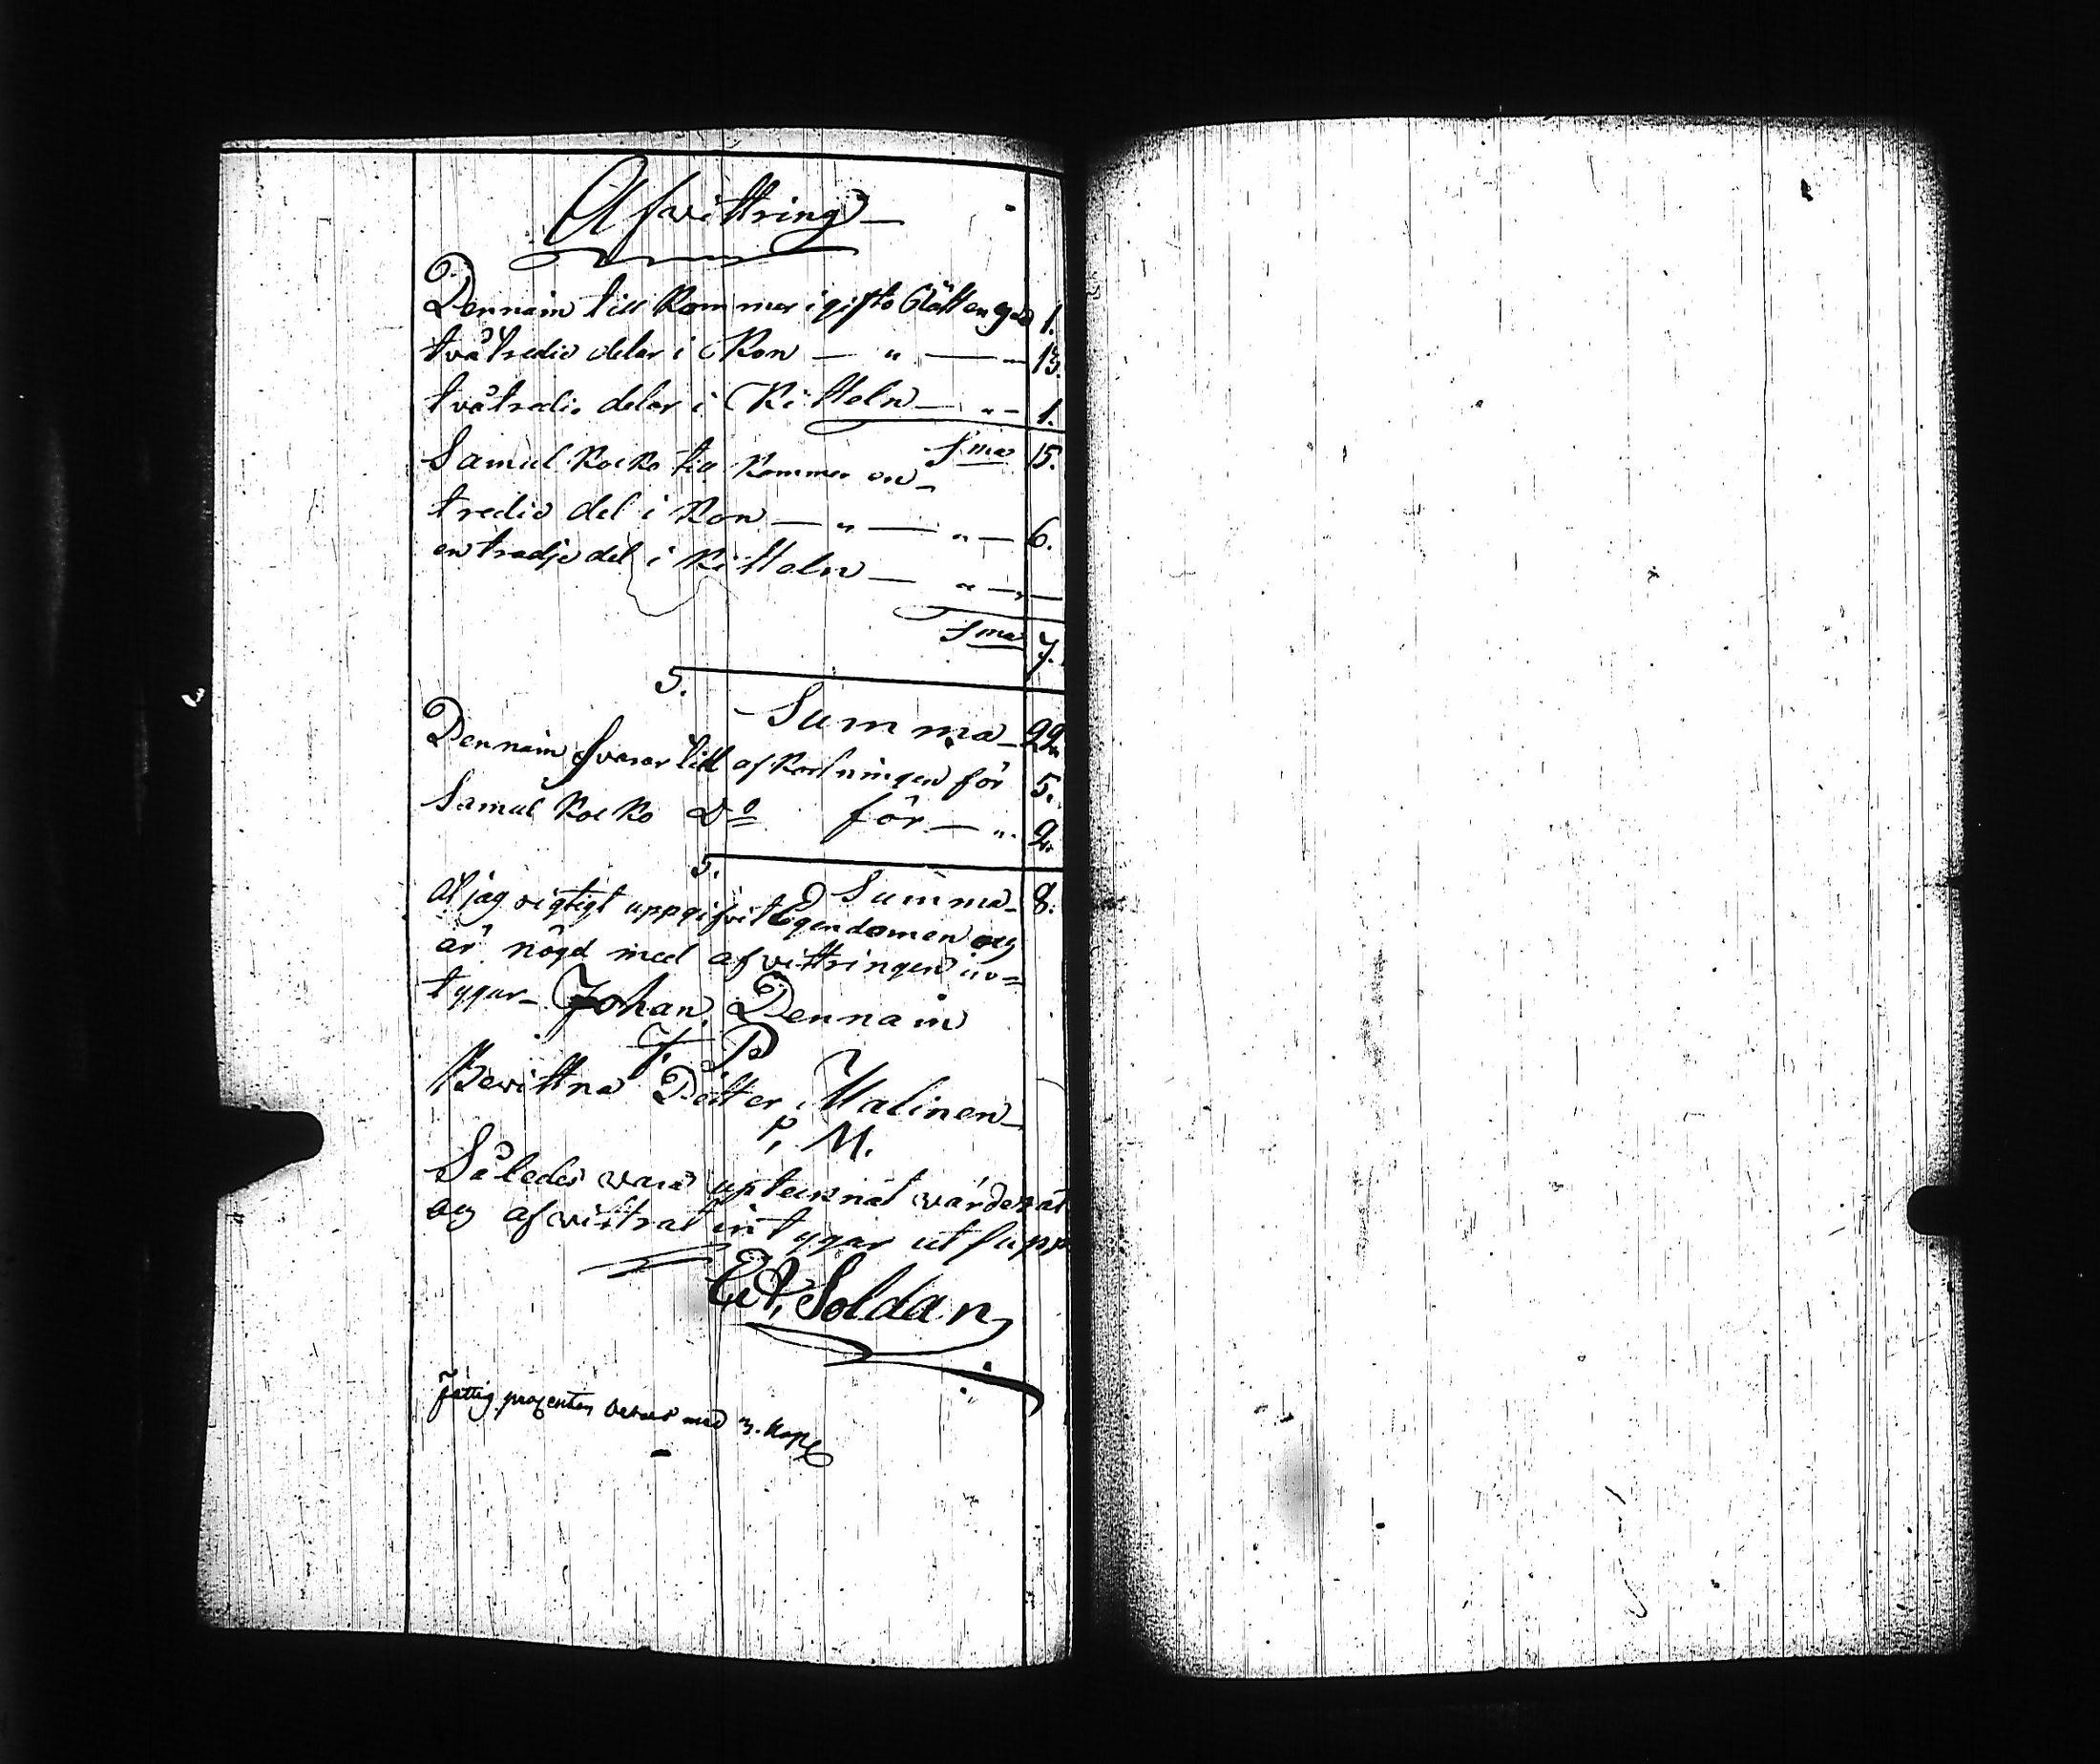 Afwittring
Dennain till Kommer i gifto Rätt en 1.
tvåtredie delar i Kon — " — " 13.
tvåtredie delar i Kitteln — " 1.
Sma 15.
Samuel Kocko till Kommer en
tredie del i Kon — " — " — 6.
en tredje del i Kitteln — " —
Sma 7.
5.
Summa 22.
Dennain Svarar till afkortningen för 5.
Samuel Kocko Do för — " 2.
5.
Summa 8.
At jag rigtigt uppgifvit Egendomen og
är nögd med afvittringen in=
tygar Johan Dennain
J. D
Bevittna Petter Malinen
P. M.
Således vara upteknat värderat
og afvittrat intygar ut supp
Soldan
Fattig procenten med 3. Kop